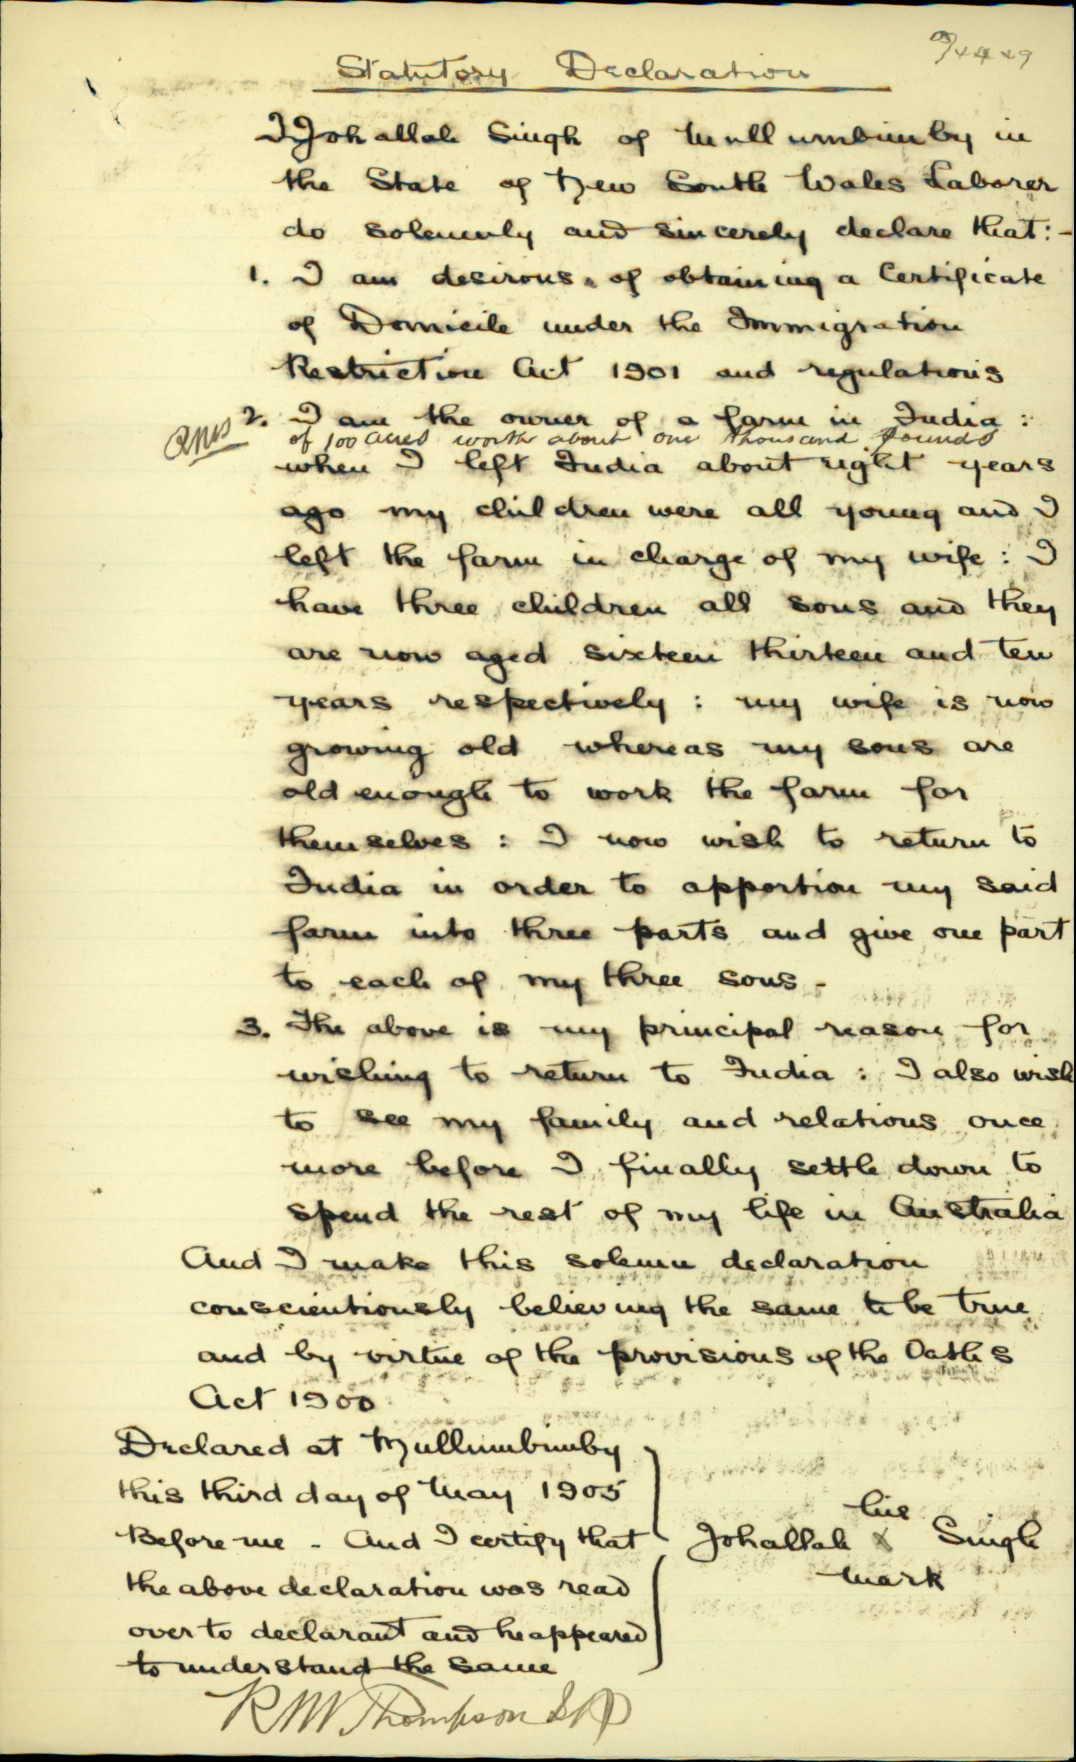 Statutory Declaration
I Johallah Singh of Mullumbimby in
the State of New South Wales Laborer
do solemnly and sincerely declare that:-
1. I am desirous of obtaining a Certificate
of Domicile under the Immigration
Restriction Act 1901 and regulations
2. I am the owner of a farm in India :
of 100 acres worth about one thousand pounds
when I left India about eight years
ago my children were all young and I
left the farm in charge of my wife : I
have three children all sons and they
are now aged sixteen thirteen and ten
years respectively : my wife is now
growing old whereas my sons are
old enough to work the farm for
themselves : I now wish to return to
India in order to apportion my said
farm into three parts and give one part
to each of my three sons -
3. The above is my principal reason for
wishing to return to India : I also wish
to see my family and relations once
more before I finally settle down to
spend the rest of my life in Australia
And I make this solemn declaration
conscientiously believing the same to be true
and by virtue of the provisions of the Oaths
Act 1900
Declared at Mullumbimby
this third day of May 1905
Before me - And I certify that
the above declaration was read
over to declarant and he appeared
to understand the same
his
Johallah x Singh
mark
RMW Thompson JP